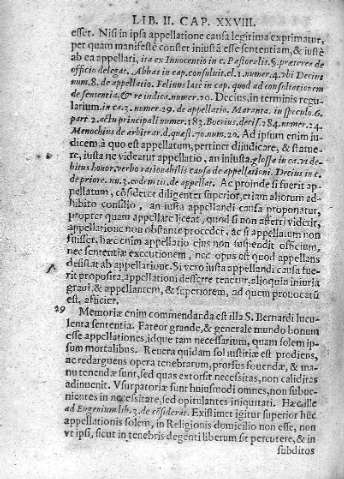 LIB. II. CAP. XXVIII.
esset. Nisi in ipsa appellatione causa legitima exprimatur,
per quam manifestè constet iniustā esse sententiam, & iustè
ab ea appellari, ita ex Innocentio in c. Pastoralis. §. præterea de
officio delegat. Abbas in cap. consuluit. el 2. numer. 4. vbi Decius
num. 8. de appellatio. Felinus late in cap. quod ad consultationem
de sententia, & re iudica. numer. 20. Decius, in terminis regu-
larium. in ca. numer. 29. de appellatio. Maranta. in speculo. 6.
part. 2. actu principali numer. 183. Bocrius, decis. 284. numer. 24.
Menochius de arbitrar. d. quæst. 70. num. 20. Ad ipsum enim iu-
dicem à quo est appellatum, pertinet dijudicare, & statue-
re, iusta ne videatur appellatio, an iniusta, glossa in
bitus honor. verbo rationabilis causa de appellationi. Decius in c.
de priore. nu. 3. eodem tit. de appellat. Ac proinde si fuerit ap-
pellatum, cōsideret diligenter superior, etiam aliorum ad-
hibito consilio, an iusta appellandi causa proponatur,
propter quam appellare liceat, quod si non asserti viderit,
appellatione non obstante procedet, ac si appellatum non
fuisset, hæc enim appellatio eius non suspendit officium,
nec sententiæ executionem, nec opus est quod appellans
desistat ab appellatione. Si vero iusta appellandi causa fue-
rit proposita, appellationi deferre tenetur, alioquin iniuria
graui, & appellantem, & superiorem, ad quem prouocatū
est, afficiet.
29 Memoriæ enim commendanda est illa S. Bernardi lucu-
lenta sententia. Fateor grande, & generale mundo bonum
esse appellationes, idque tam necessarium, quam solem ip-
sum mortalibus. Reuera quidam sol iustitiæ est prodens,
ac redarguens opera tenebrarum, prorsus fouendæ, & ma-
nu tenendæ sunt, sed quas extorsit necessitas, non caliditas
adinuenit. Vsurpatoriæ sunt huiusmodi omnes, non subue-
nientes in necessitate, sed opitulantes iniquitati. Hæc ille
ad Eugenium lib. 3. de cōsiderat. Existimet igitur superior hæc
appellationis solem, in Religionis domicilio non esse, non
vt ipsi, sicut in tenebris degenti liberum sit percutere, & in
subditos